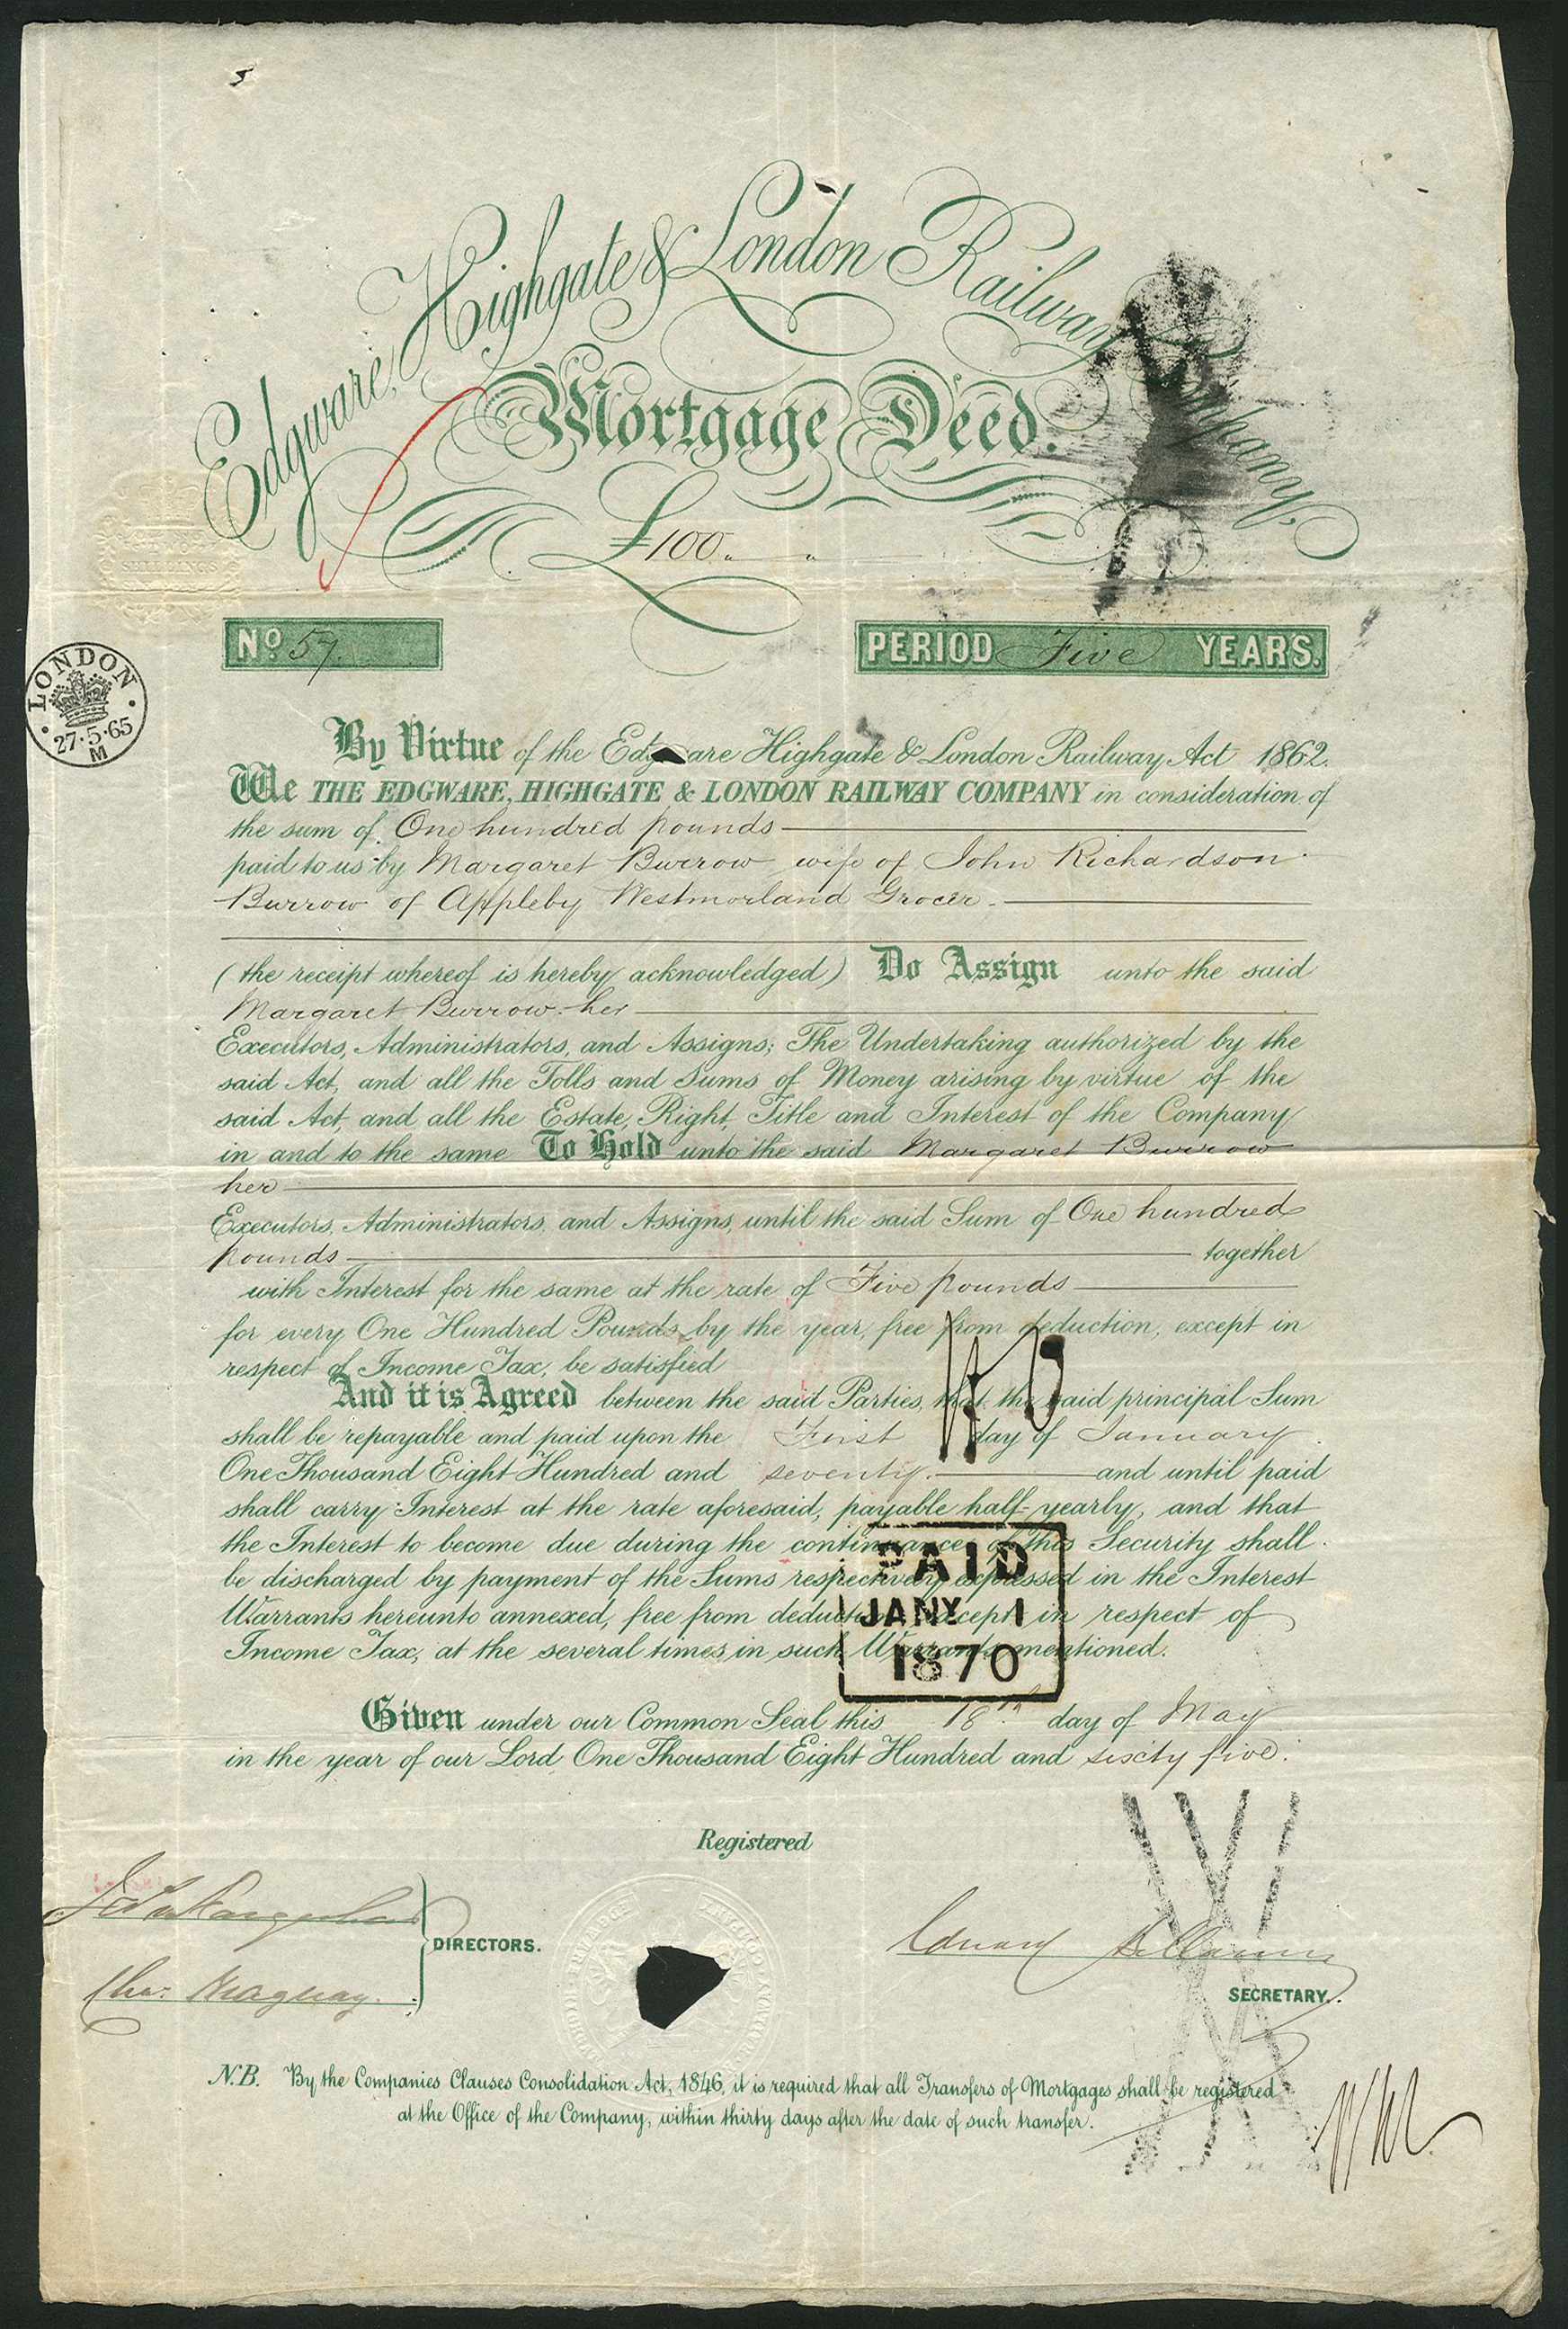 Edgware, Highgate & London Railway Company,
Mortgage Deed.
£100 " "
SHILLINGS
No 57.
PERIOD Five YEARS.
LONDON
27·5·65
M
By Virtue of the Edgware Highgate & London Railway Act 1862.
We THE EDGWARE, HIGHGATE & LONDON RAILWAY COMPANY in consideration of
the sum of One hundred pounds
paid to us by Margaret Burrow wife of John Richardson
Burrow of Appleby Westmorland Grocer.
(the receipt whereof is hereby acknowledged) Do Assign unto the said
Margaret Burrow her
Executors, Administrators, and Assigns; The Undertaking authorized by the
said Act, and all the Tolls and Sums of Money arising by virtue of the
said Act, and all the Estate, Right, Title and Interest of the Company
in and to the same To Hold unto the said Margaret Burrow
her
Executors, Administrators, and Assigns, until the said Sum of One hundred
pounds together
with Interest for the same at the rate of Five pounds
for every One Hundred Pounds by the year, free from deduction, except in
respect of Income Tax, be satisfied
And it is Agreed between the said Parties, that the said principal Sum
shall be repayable and paid upon the First day of January
One Thousand Eight Hundred and seventy. and until paid
shall carry Interest at the rate aforesaid, payable half-yearly, and that
the Interest to become due during the continuance of this Security shall
be discharged by payment of the Sums respectively expressed in the Interest
Warrants hereunto annexed, free from deduction, except in respect of
Income Tax, at the several times in such Warrants mentioned.
PAID
JANY 1
1870
Given under our Common Seal this 18th day of May
in the year of our Lord One Thousand Eight Hundred and sixty five.
Registered
DIRECTORS.
SECRETARY.
N.B. By the Companies Clauses Consolidation Act, 1846, it is required that all Transfers of Mortgages shall be registered
at the Office of the Company, within thirty days after the date of such transfer.